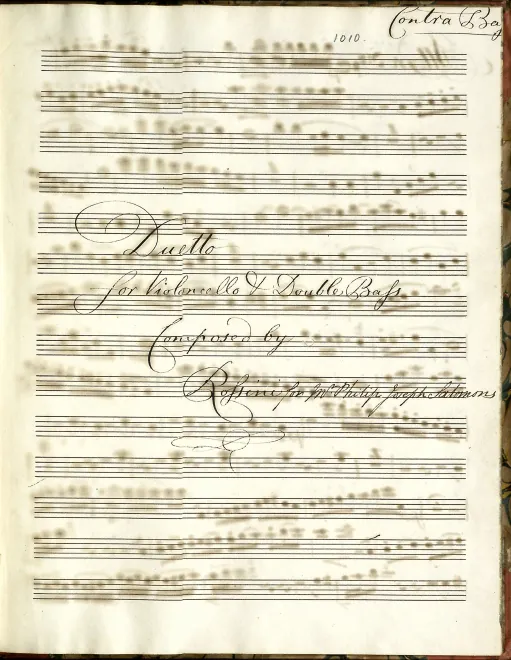 1010.
Contra Ba
Duetto
for Violoncello & Double Bass
Composed by
Rossini for Mr. Philip Joseph Salomons